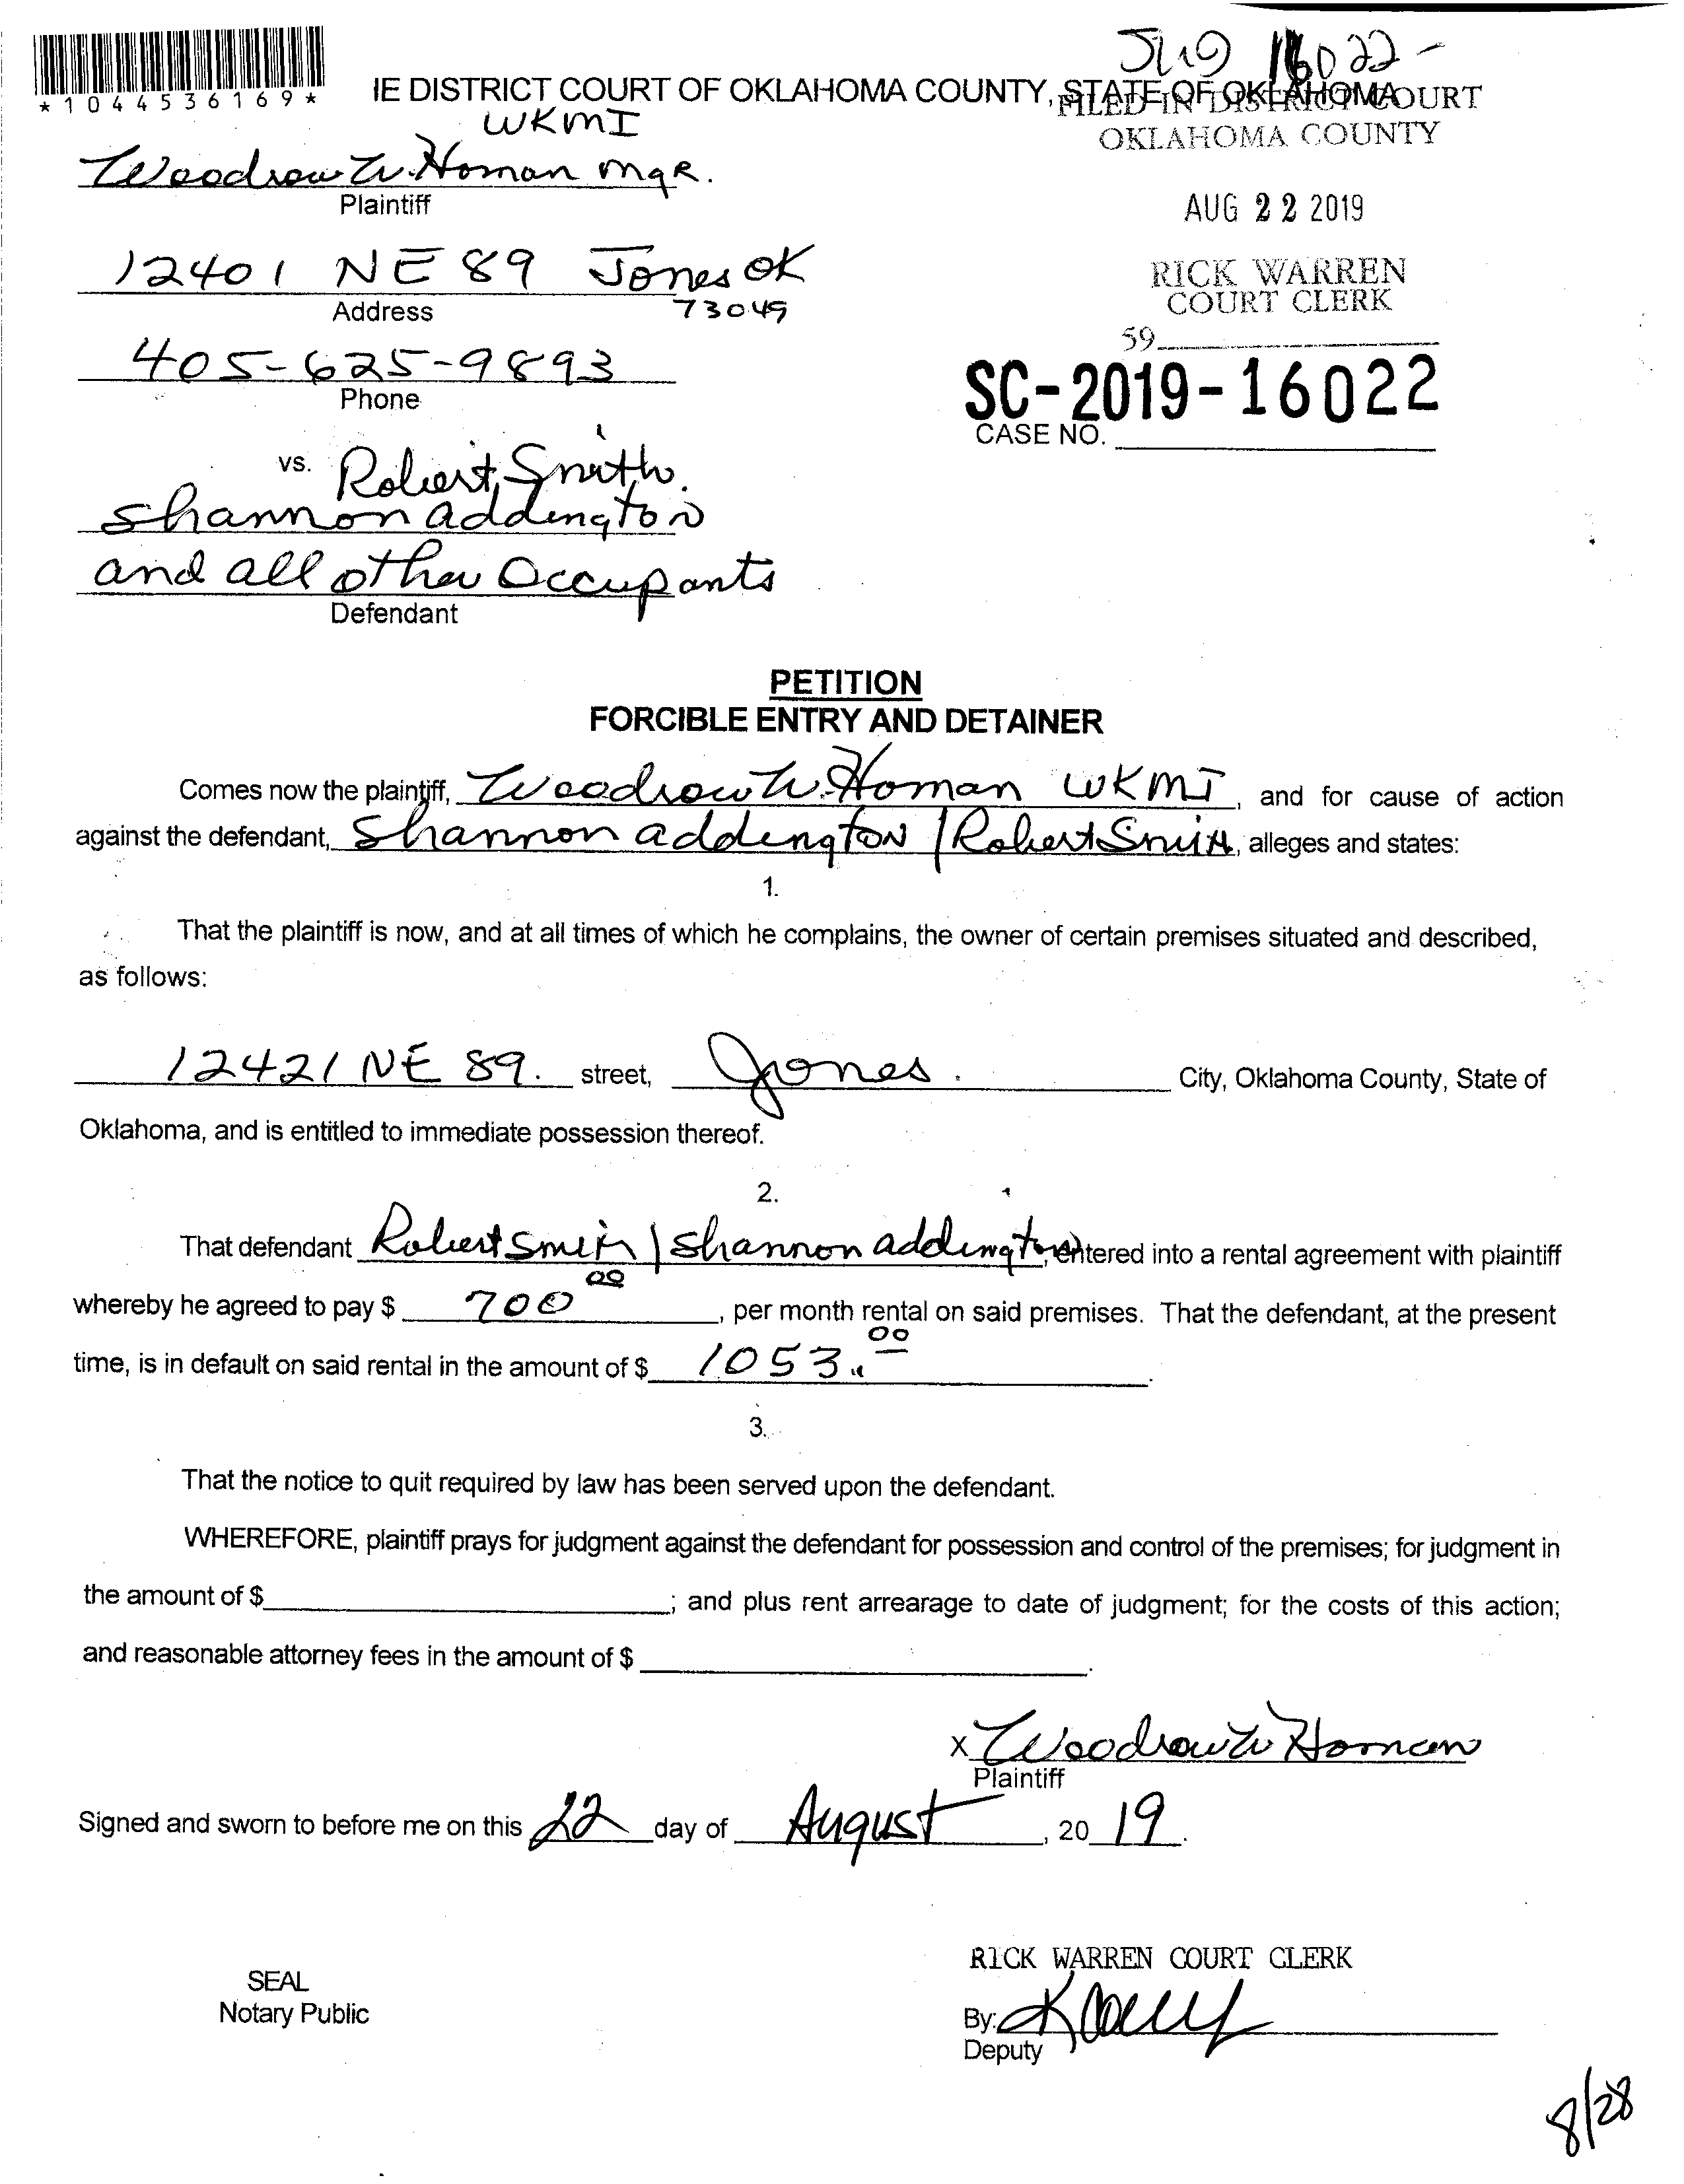 16022-
*1044536169*
IE DISTRICT COURT OF OKLAHOMA COUNTY, STATE OF OKLAHOMA
FILED IN DISTRICT COURT
OKLAHOMA COUNTY
WKMI
Woodrow W. Homan mgR.
Plaintiff
AUG 22 2019
12401 NE 89 Jones OK
Address
73049
RICK WARREN
COURT CLERK
59
405-625-9893
Phone
SC-2019-16022
CASE NO.
vs. Robert Smith.
Shannon addington
and all other Occupants
Defendant
PETITION
FORCIBLE ENTRY AND DETAINER
Comes now the plaintiff, Woodrow W. Homan WKMI, and for cause of action
against the defendant, Shannon addington / Robert Smith, alleges and states:
1.
That the plaintiff is now, and at all times of which he complains, the owner of certain premises situated and described,
as follows:
12421 NE 89. street, Jones. City, Oklahoma County, State of
Oklahoma, and is entitled to immediate possession thereof.
2.
That defendant Robert Smith / Shannon addington, entered into a rental agreement with plaintiff
whereby he agreed to pay $ 700 00, per month rental on said premises. That the defendant, at the present
time, is in default on said rental in the amount of $ 1053.00.
3.
That the notice to quit required by law has been served upon the defendant.
WHEREFORE, plaintiff prays for judgment against the defendant for possession and control of the premises; for judgment in
the amount of $ ; and plus rent arrearage to date of judgment; for the costs of this action;
and reasonable attorney fees in the amount of $ .
X Woodrow W Homan
Plaintiff
Signed and sworn to before me on this 22 day of August, 20 19.
RICK WARREN COURT CLERK
SEAL
Notary Public
By:
Deputy
8/28